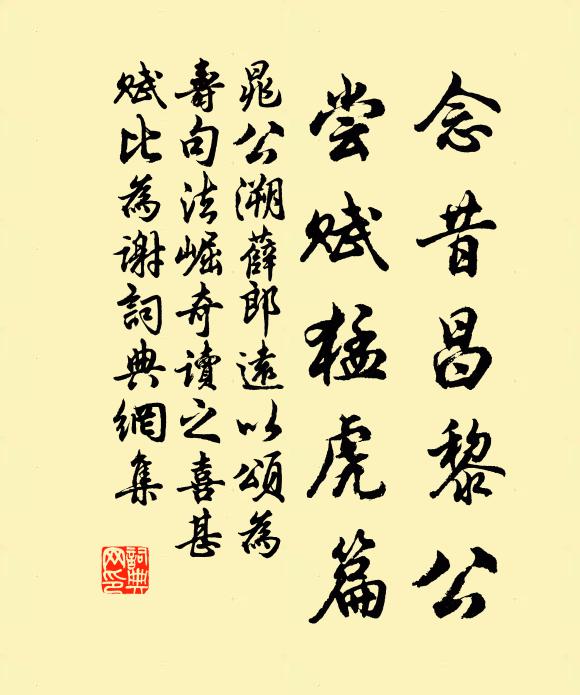 念昔昌黎公
尝赋猛虎篇
晁公溯薛郎遠以頌為
壽句法崛奇讀之喜甚
赋比為谢詞典網集
詞典网印